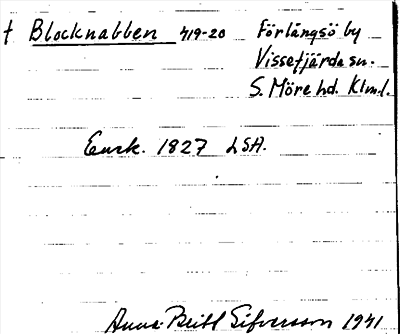 † Blocknabben 719-20 Förlångsö by
Vissefjärda sn.
S. Möre hd. Klm.l.
Ensk. 1827 LSA.
Anna-Britt Sifversson 1941